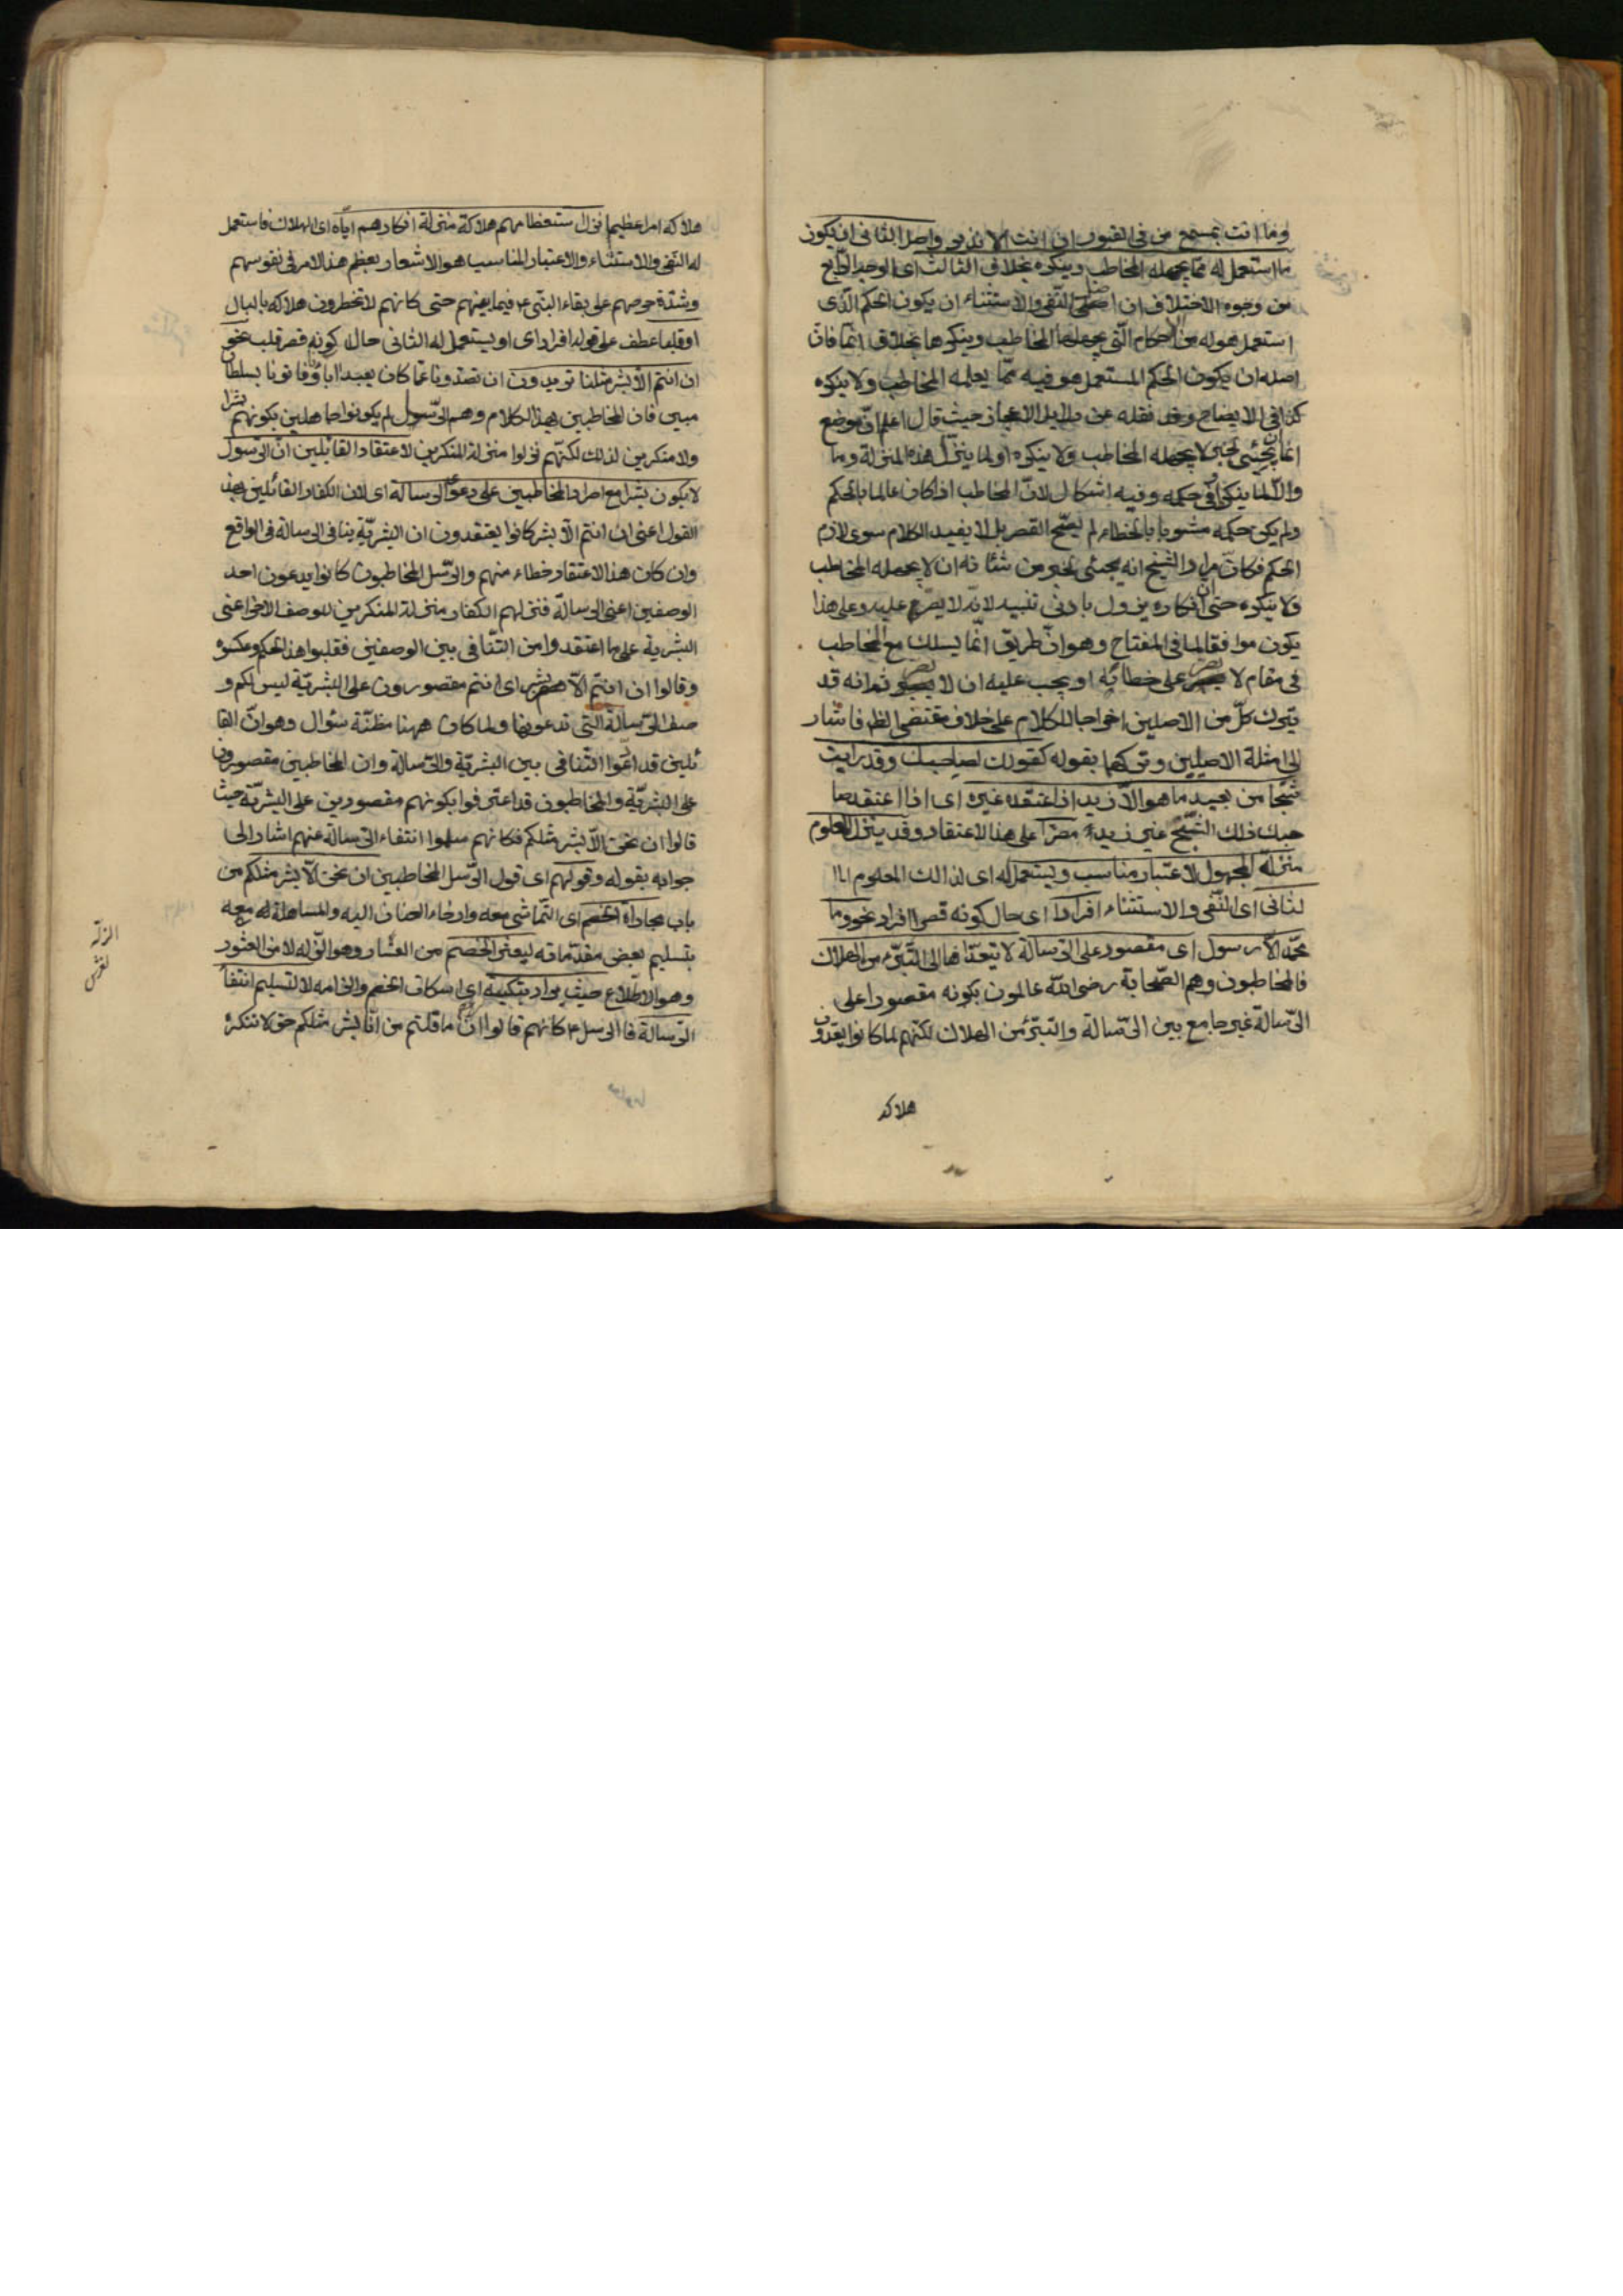 وما انت بمسمع من فى القبور ان انت الا نذير واصل الثانى ان يكون
ما استعمل له مما يجهله المخاطب وينكره بخلاف الثالث اى الوجه الرّابع
من وجوه الاختلاف ان اصل النّفى والاستثناء ان يكون الحكم الّذى
استعمل هو له من الاحكام الّتى يجهلها المخاطب وينكرها بخلاف انّما فان
اصله ان يكون الحكم المستعمل هو فيه ممّا يعلمه المخاطب ولا ينكره
كذا فى الايضاح وقد نقله عن دلايل الاعجاز حيث قال اعلم انّ موضع
انّما ان يجئى لخبر لا يجهله المخاطب ولا ينكره او لما ينزّل هذه المنزلة وما
والّا لما ينكر فى حكمه وفيه اشكال لانّ المخاطب اذا كان عالما بالحكم
ولم يكن حكمه مشوبا بالخطاء لم يصّح القصر بل لا يفيد الكلام سوى لازم
الحكم فكانّ مراد الشيخ انه يجئى لخبر من شانه ان لا يجهله المخاطب
ولا ينكره حتى ان انكاره يزول بادنى تنبيه لانّه لا يصرّ عليه وعلى هذا
يكون موافقا لما فى المفتاح وهو انّ طريق انّما يسلك مع المخاطب
فى مقام لا يصر على خطائه او يجب عليه ان لا يصر ثم انه قد
يترك كلّ من الاصلين اخراجا للكلام على خلاف مقتضى الظ فاشار
الى امثلة الاصلين وتركهما بقوله كقولك لصاحبك وقد رايت
شبحا من بعيد ما هو الّا زيد اذا اعتقده غيره اى اذا اعتقد صا
حبك ذلك الشبح غير زيد مصرّا على هذا الاعتقاد وقد ينزل المعلوم
منزلة المجهول لاعتبار مناسب ويستعمل له اى لذالك المعلوم ا
لثانى اى النّفى والاستثناء افرادا اى حال كونه قصر افراد نحو وما
محمّد الّا رسول اى مقصور على الرّسالة لا يتعدّاها الى التّبرّء من الهلاك
فالمخاطبون وهم الصّحابة رضى اللّه عالمون بكونه مقصورا على
الرّسالة غير جامع بين الرّسالة والتبرّء من الهلاك لكنّهم لما كانوا يعدون
هلاكه
هلاكه امرا عظيما نزل ستعظامهم هلاكه منزلة انكارهم ايّاه اى الهلاك فاستعمل
له النّفى والاستثناء والاعتبار المناسب هو الاشعار بعظم هذا الامر فى نفوسهم
وشدّة حرصهم على بقاء النبّى فيما بينهم حتى كانهم لا تخطرون هلاكه بالبال
او قلبا عطف على قوله افرادا اى او يستعمل له الثانى حال كونه قصر قلب نحو
ان انتم الّا بشر مثلنا تريدون ان تصدونا عمّا كان يعبد اباؤنا فاتونا بسلطان
مبين فان المخاطبين بهذا الكلام وهم الرّسول لم يكونوا جاهلين بكونهم بشرا
ولا منكرين لذلك لكنّهم نزلوا منزلة المنكرين لاعتقاد القايلين انّ الرّسول
لا يكون بشرا مع اصرار المخاطبين على دعوى الرسالة اى لان الكفار القائلين بهذ
القول اعنى ان انتم الّا بشر كانوا يعتقدون ان البشريّة ينافى الرسالة فى الواقع
وان كان هذا الاعتقاد خطاء منهم والرّسل المخاطبون كانوا يدعون احد
الوصفين اعنى الرسالة فنزلهم الكفار منزلة المنكرين للوصف الاخر اعنى
البشرية على ما اعتقدوا من التنافى بين الوصفين فقلبوا هذا الحكم وعكسوه
وقالوا ان انتم الّا بشر اى انتم مقصورون على البشريّة ليس لكم و
صف الرّسالة الّتى تدعونها ولما كان ههنا مظنّة سؤال وهو انّ القا
ئلين قد ادّعوا التنافى بين البشريّة والرّسالة وان المخاطبين مقصورون
على البشريّة والمخاطبون قد اعترفوا بكونهم مقصورين على البشريّة حيث
قالوا ان نحن الّا بشر مثلكم فكانهم سلموا انتفاء الرّسالة عنهم اشار الى
جوابه بقوله وقولهم اى قول الرّسل المخاطبين ان نحن الّا بشر مثلكم من
باب مجاراة الخصم اى التّماشى معه وارخاء العنان اليه والمساهلة معه
بتسليم بعض مقدّماته ليعثر الخصم من العثار وهو الزّلة لا من العثور
وهو الاطّلاع حيث يراد تبكيته اى اسكات الخصم والزامه لا لتسليم انتفاء
الرّسالة فالرسل كانهم قالوا انّ ما قلتم من انّا بشر مثلكم حق لا ننكره
الزلّه
لغزش